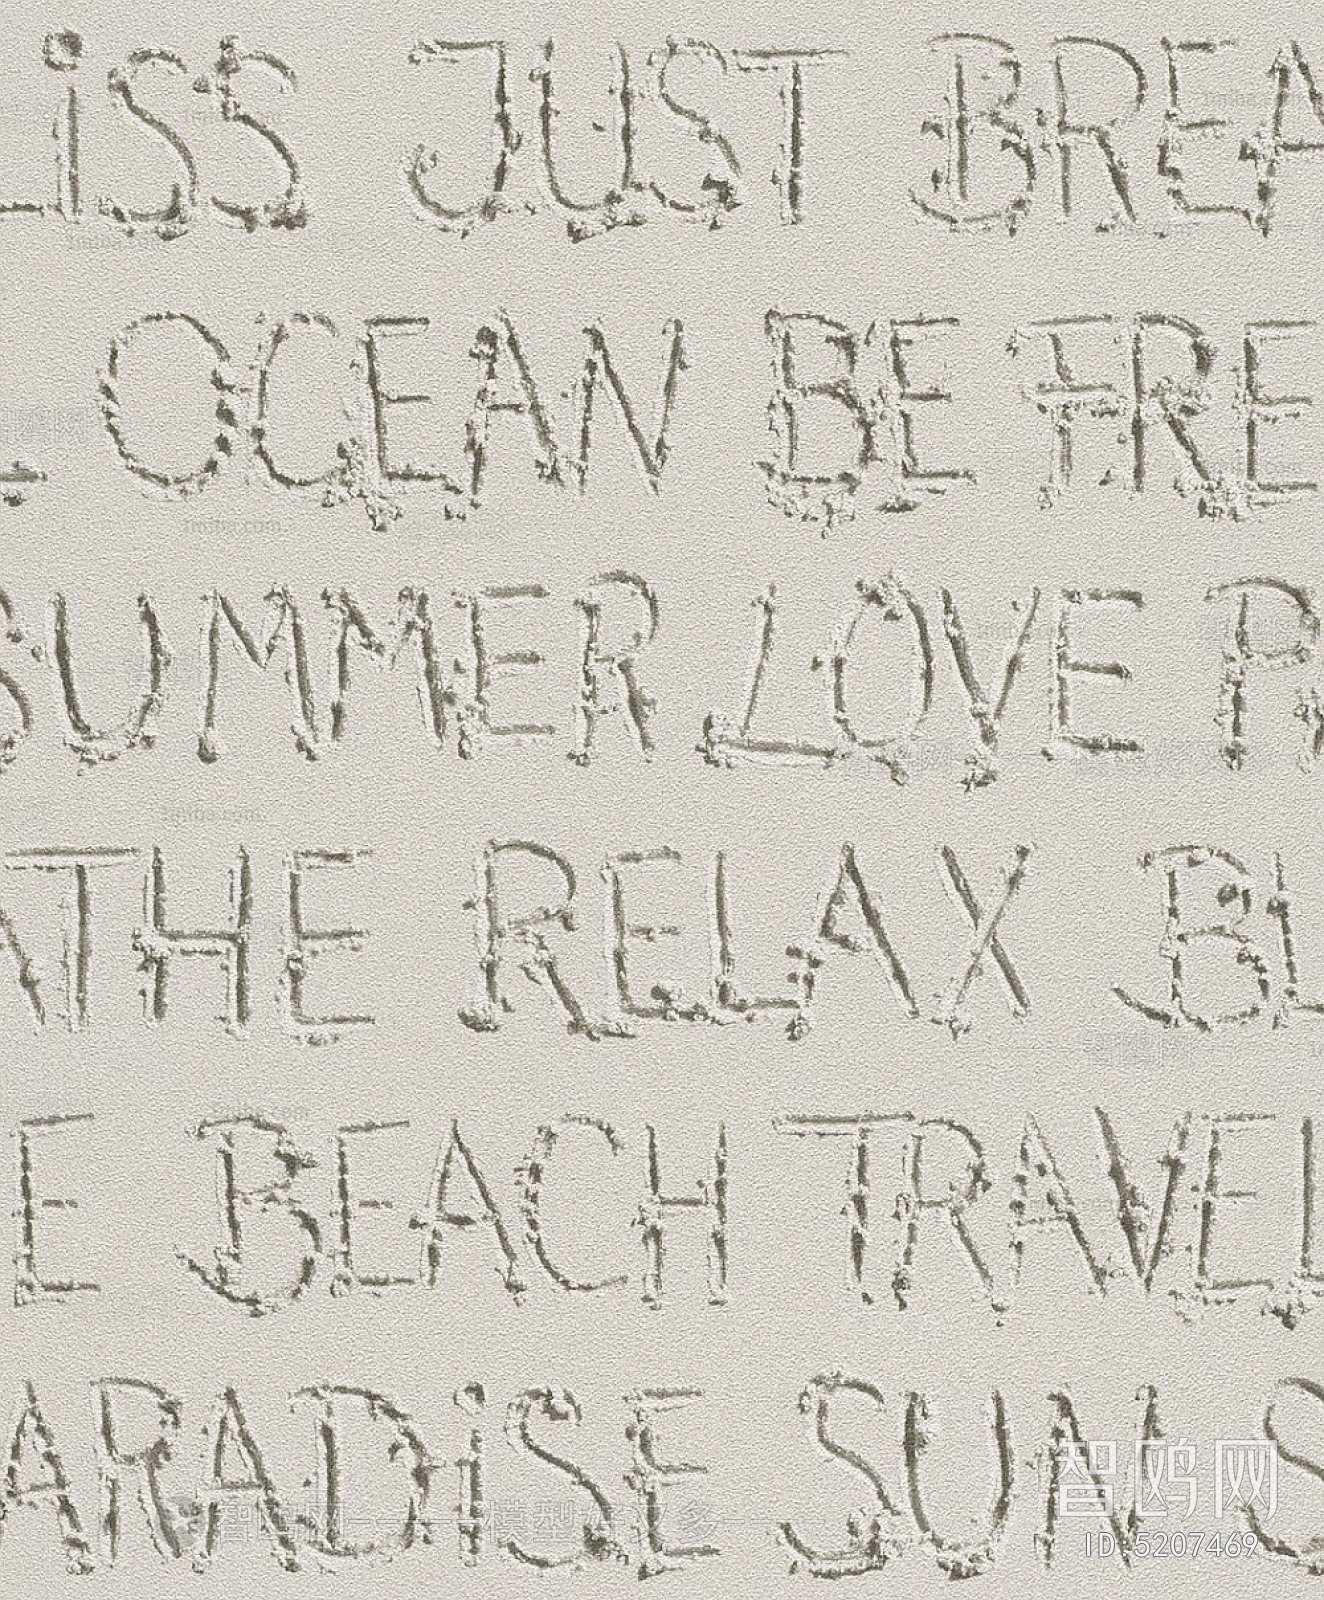 LiSS JUST BREA
L OCEAN BE FREE
SUMMER LOVE PA
THE RELAX BL
E BEACH TRAVEL
ARADiSE SUN S
智鸥网
ID:5207469